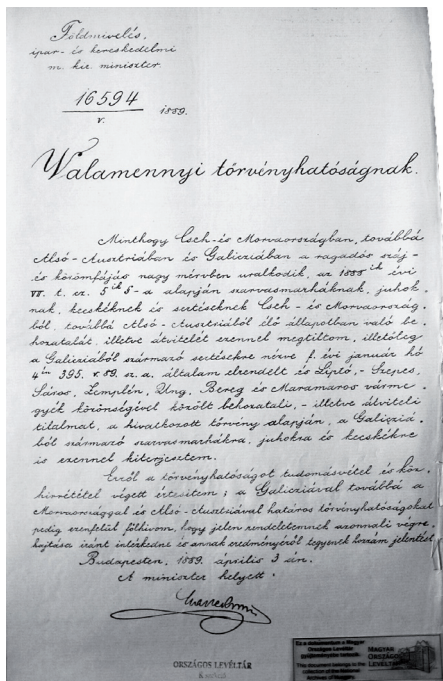 Földmivelés,
ipar- és kereskedelmi
m. kir. miniszter.
16594
v. 1889.
Valamennyi törvényhatóságnak.
Minthogy Cseh- és Morvaországban, továbbá
Alsó-Ausztriában és Galicziában a ragadós száj-
és körömfájás nagy mérvben uralkodik, az 1888ik évi
VII. t. cz. 5ik §-a alapján szarvasmarháknak, juhok-
nak, kecskéknek és sertéseknek Cseh- és Morvaország-
ból, továbbá Alsó-Ausztriából élő állapotban való be-
hozatalát, illetve átvitelét ezennel megtiltom, illetőleg
a Galicziából származó sertésekre nézve f. évi január hó
4én 395. v. 89. sz. a. általam elrendelt és Liptó,- Szepes,
Sáros, Zemplén, Ung, Bereg és Maramaros várme-
gyék közönségével közölt behozatali,- illetve átviteli
tilalmat, a hivatkozott törvény alapján, a Galicziá-
ból származó szarvasmarhákra, juhokra és kecskékre
is ezennel kiterjesztem.
Erről a törvényhatóságot tudomásvétel és köz-
hirrététel végett értesitem; a Galicziával továbbá a
Morvaországgal és Alsó-Ausztriával határos törvényhatóságokat
pedig ezenfelül fölhivom, hogy jelen rendeletemnek azonnali végre-
hajtása iránt intézkedne és annak eredményéről tegyenek hozzám jelentést
Budapesten, 1889. április 3 án.
A miniszter helyett.
ORSZÁGOS LEVÉLTÁR
Ez a dokumentum a Magyar
Országos Levéltár
gyűjteményébe tartozik.
This document belongs to the
collection of the National
Archives of Hungary
MAGYAR
ORSZÁGOS
LEVÉLTÁR